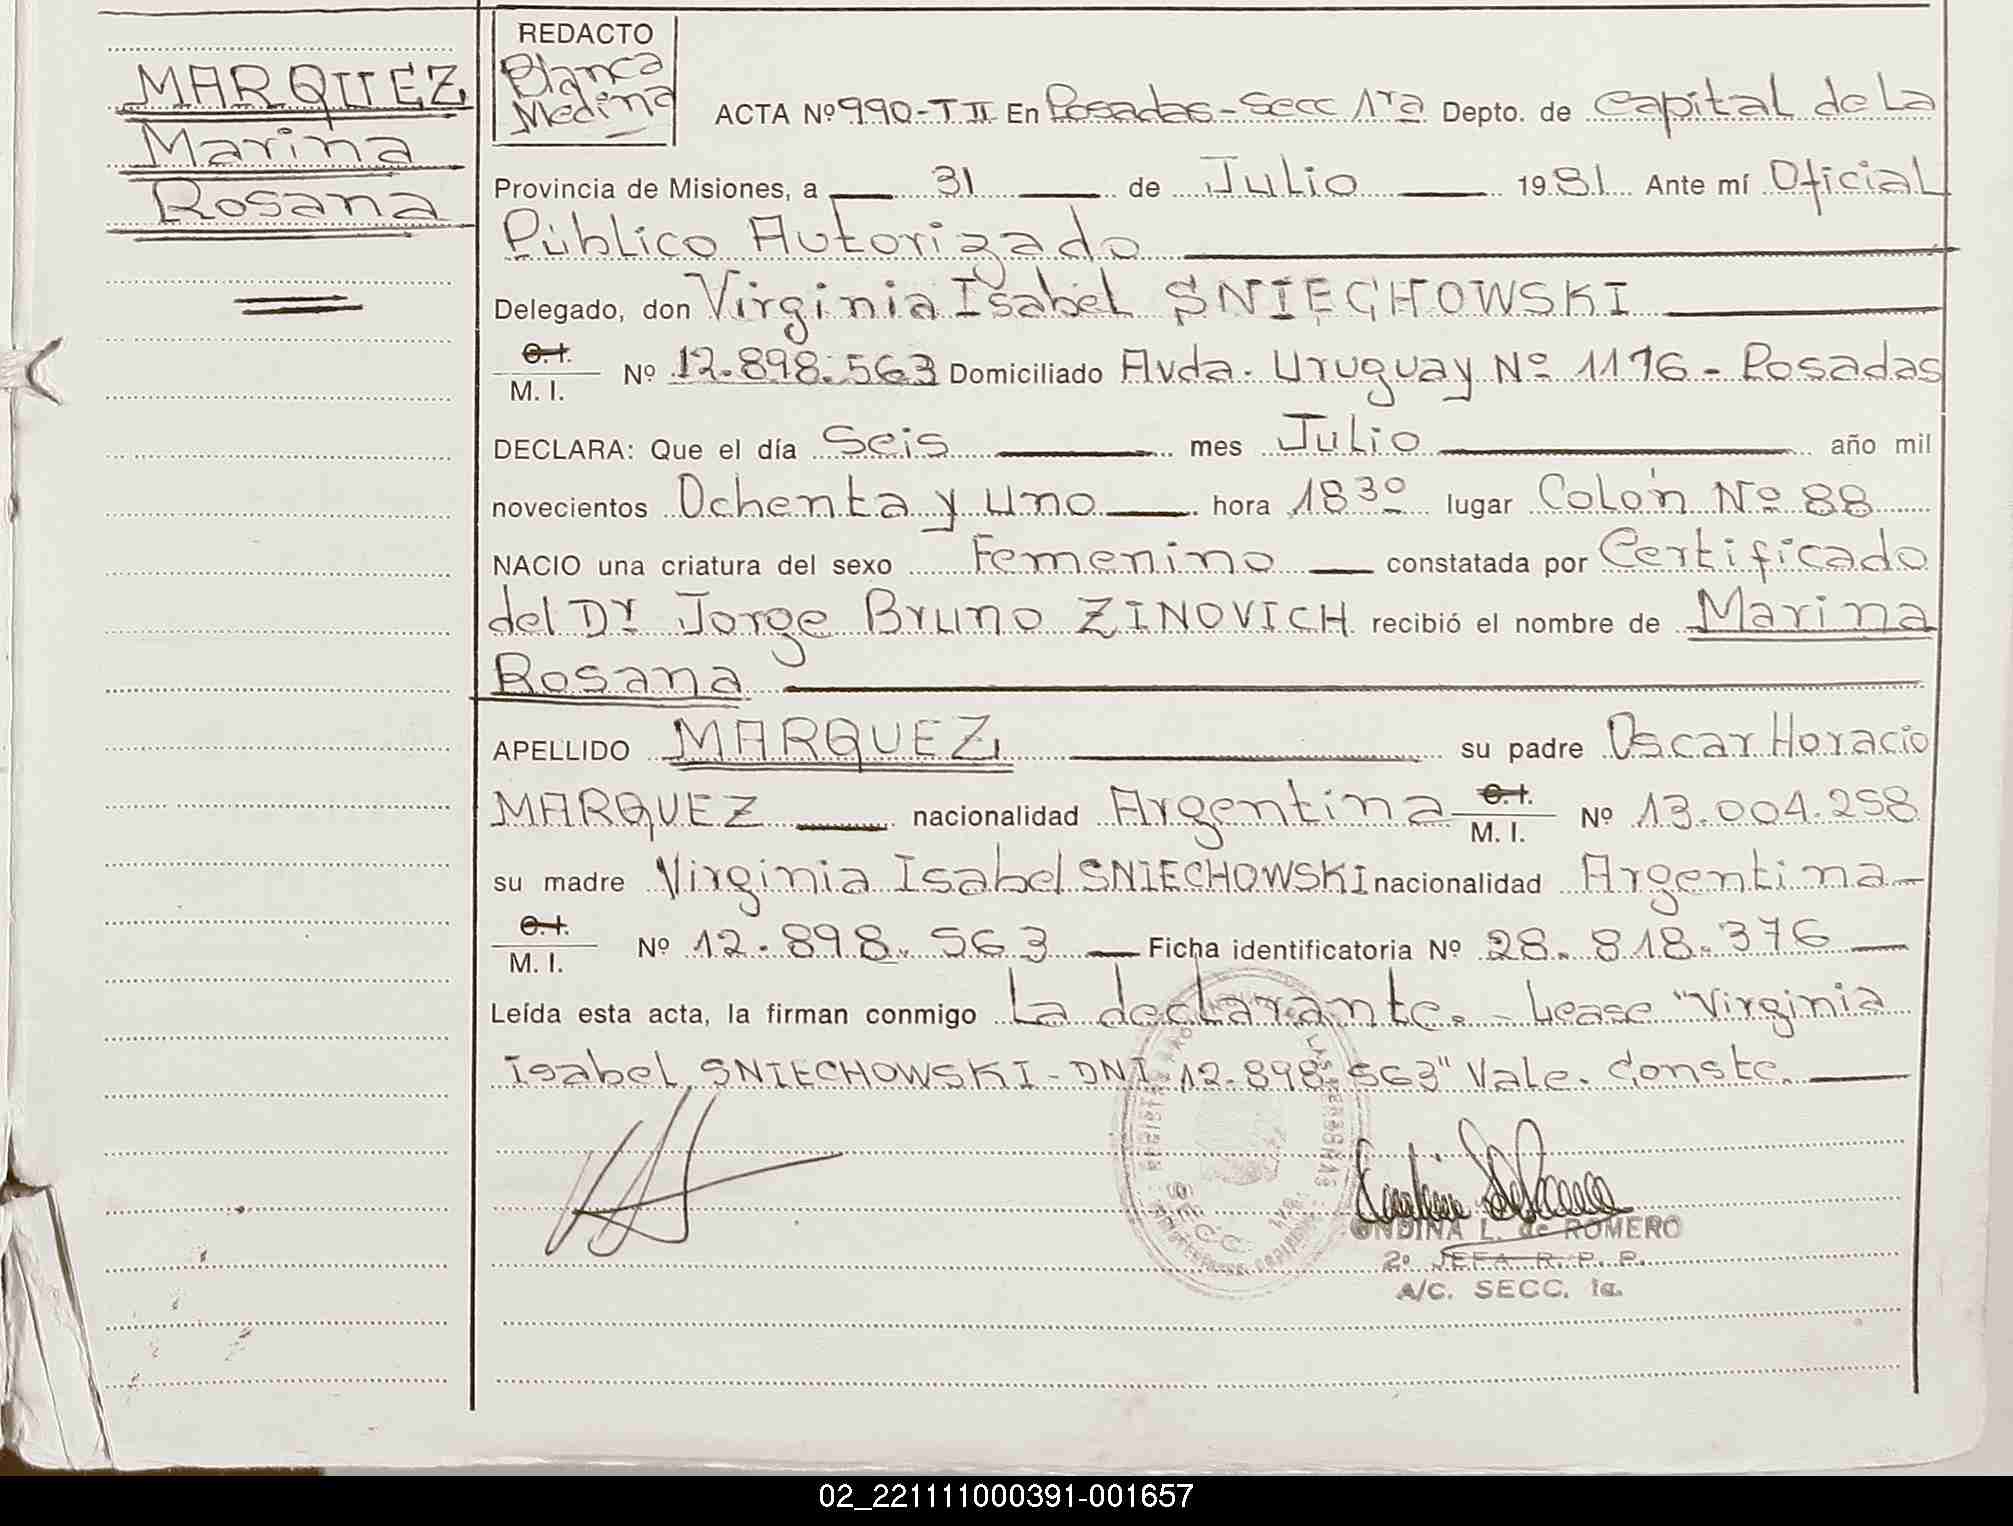 MARQUEZ
Marina
Rosana
REDACTO
Blanca
Medina
ACTA Nº 990-T II En Posadas-Secc 1ra Depto. de Capital de La
Provincia de Misiones, a 31 de Julio 1981 Ante mí Oficial
Público Autorizado
Delegado, don Virginia Isabel SNIECHOWSKI
C.I.
M. I. Nº 12.898.563 Domiciliado Avda. Uruguay Nº 1176 - Posadas
DECLARA: Que el día Seis mes Julio año mil
novecientos Ochenta y uno hora 18 30 lugar Colón Nº 88
NACIO una criatura del sexo Femenino constatada por Certificado
del Dr Jorge Bruno ZINOVICH recibió el nombre de Marina
Rosana
APELLIDO MARQUEZ su padre Oscar Horacio
MARQUEZ nacionalidad Argentina C.I. M. I. Nº 13.004.258
su madre Virginia Isabel SNIECHOWSKI nacionalidad Argentina
C.I.
M. I. Nº 12.898.563 Ficha identificatoria Nº 28.818.376
Leída esta acta, la firman conmigo La declarante. - Lease "Virginia
Isabel SNIECHOWSKI - DNI 12.898.563" Vale. Conste.
ONDINA L. de ROMERO
2º JEFA R. P. P.
A/C. SECC. 1a.
SECC. 1ra.
02_221111000391-001657